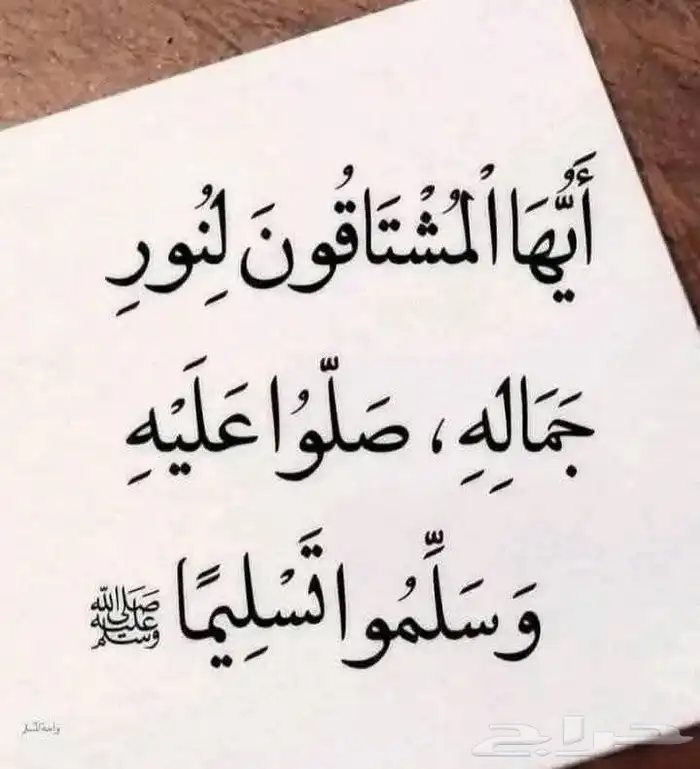 أَيُّهَا الْمُشْتَاقُونَ لِنُورِ
جَمَالِهِ ، صَلُّوا عَلَيْهِ
وَسَلِّمُوا تَسْلِيمًا ﷺ
حراج